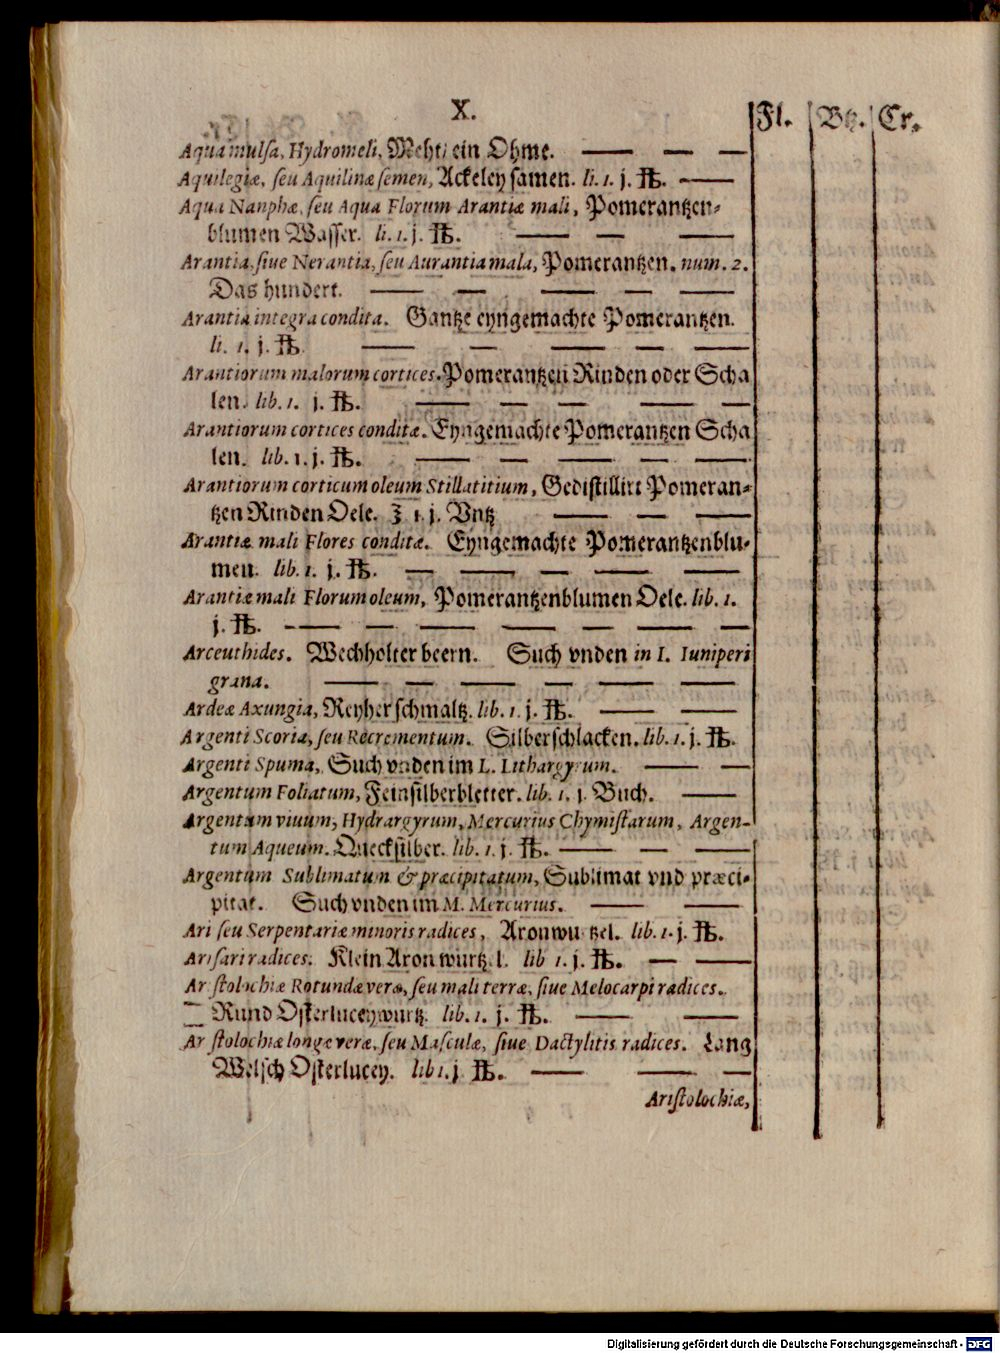 X.
Fl. Btz. Cr.
Aqua mulſa, Hydromeli, Meht/ ein Ohme.
Aquilegiæ, ſeu Aquilinæ ſemen, Ackeley ſamen. li. 1. j. ℔.
Aqua Nanphæ, ſeu Aqua Florum Arantiæ mali, Pomerantzen-
blumen Waſſer. li. 1. j. ℔.
Arantia, ſiue Nerantia, ſeu Aurantia mala, Pomerantzen. num. 2.
Das hundert.
Arantia integra condita. Gantze eyngemachte Pomerantzen.
li. 1. j. ℔.
Arantiorum malorum cortices. Pomerantzen Rinden oder Scha
len. lib. 1. j. ℔.
Arantiorum cortices conditæ. Eyngemachte Pomerantzen Scha
len. lib. 1. j. ℔.
Arantiorum corticum oleum Stillatitium, Gediſtillirt Pomeran-
tzen Rinden Oele. ʒ 1. j. Vntz
Arantiæ mali Flores conditæ. Eyngemachte Pomerantzenblu-
men. lib. 1. j. ℔.
Arantiæ mali Florum oleum, Pomerantzenblumen Oele. lib. 1.
j. ℔.
Arceuthides. Wechholter beern. Such vnden in I. Iuniperi
grana.
Ardeæ Axungia, Reyher ſchmaltz. lib. 1. j. ℔.
Argenti Scoria, ſeu Recrementum. Silberſchlacken. lib. 1. j. ℔.
Argenti Spuma, Such vnden im L. Lithargyrum.
Argentum Foliatum, Feinſilberbletter. lib. 1. j. Buch.
Argentum viuum, Hydrargyrum, Mercurius Chymiſtarum, Argen-
tum Aqueum. Queckſilber. lib. 1. j. ℔.
Argentum Sublimatum & præcipitatum, Sublimat vnd præci-
pitat. Such vnden im M. Mercurius.
Ari ſeu Serpentariæ minoris radices, Aronwurtzel. lib. 1. j. ℔.
Ariſari radices. Klein Aron wurtzel. lib 1. j. ℔.
Ariſtolochiæ Rotundæ veræ, ſeu mali terræ, ſiue Melocarpi radices.
Rund Oſterluceywurtz. lib. 1. j. ℔.
Ariſtolochiæ longæ veræ, ſeu Maſculæ, ſiue Dactylitis radices. Lang
Welſch Oſterlucey. lib 1. j ℔.
Ariſtolochiæ,
Digitalisierung gefördert durch die Deutsche Forschungsgemeinschaft - DFG